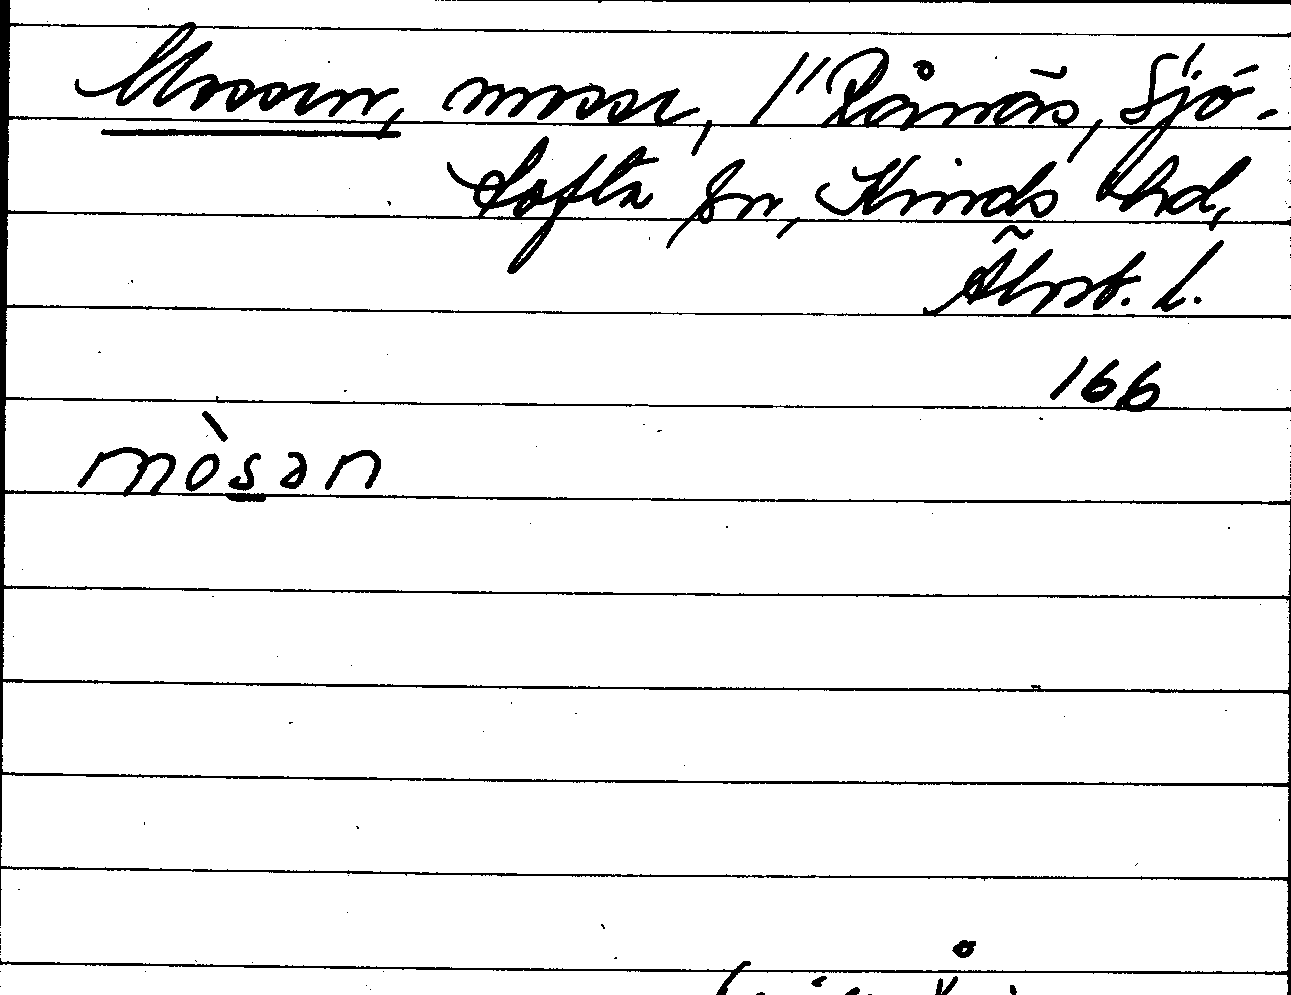 Mossen, mosse, 1" Rånäs, Sjö-
tofta sn, Kinds hd,
Älvsb. l.
166
mòsən